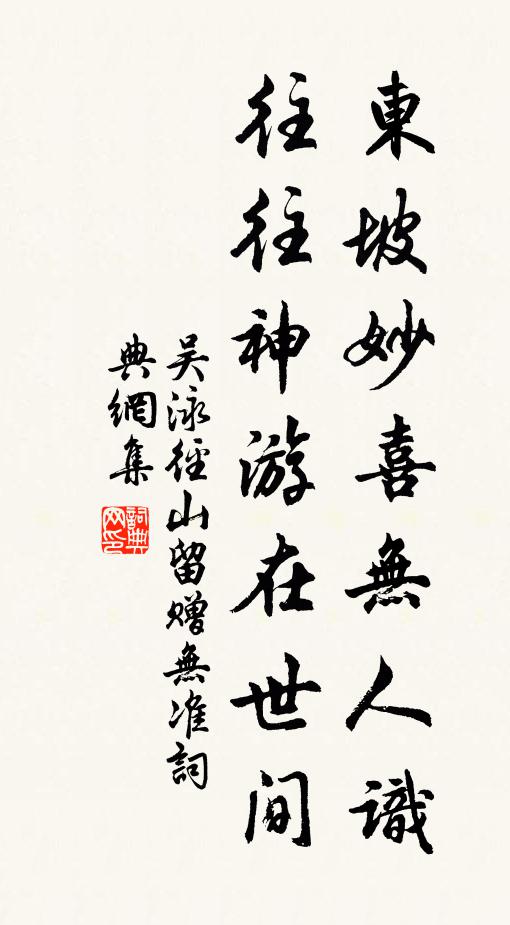 東坡妙喜無人識
往往神游在世間
吴泳徑山留贈無准詞
典網集
詞典网印